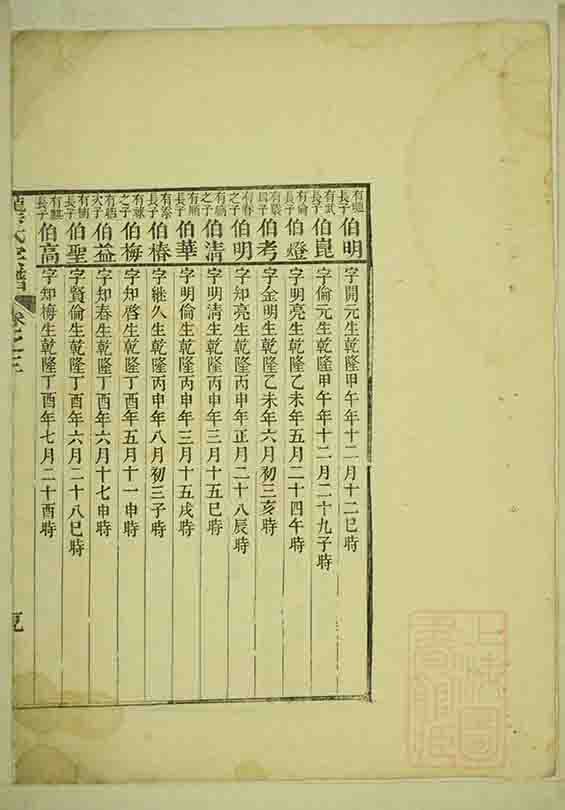 有 長子 伯明 字開元生乾隆甲午年十二月十二巳時
有武長子 伯崑 字倫元生乾隆甲午年十二月二十九子時
有倫長子 伯燈 字明亮生乾隆乙未年五月二十四午時
有 子 伯考 字金明生乾隆乙未年六月初三亥時
有 之子 伯明 字知亮生乾隆丙申年正月二十八辰時
有 之子 伯清 字明清生乾隆丙申年三月十五巳時
有順長子 伯華 字明倫生乾隆丙申年三月十五戌時
有 長子 伯椿 字繼久生乾隆丙申年八月初三子時
有 之子 伯梅 字知啓生乾隆丁酉年五月十一申時
有 次子 伯益 字知春生乾隆丁酉年六月十七申時
有 長子 伯聖 字賢倫生乾隆丁酉年六月二十八巳時
有 長子 伯高 字知梅生乾隆丁酉年七月二十酉時
氏宗譜 卷之
上海圖書館藏